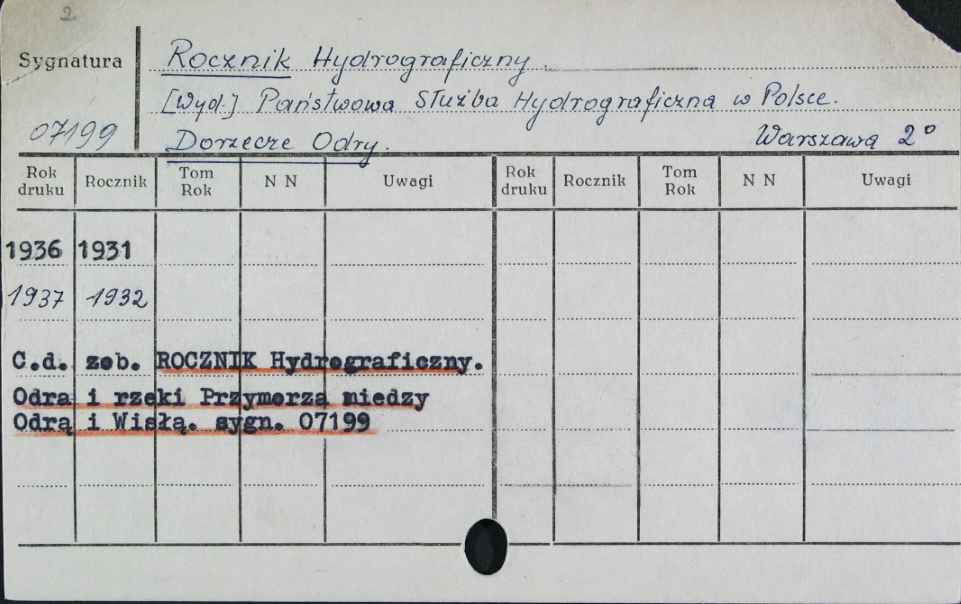 2
Sygnatura
Rocznik Hydrograficzny.
[Wyd.] Państwowa Służba Hydrograficzna w Polsce.
07199
Dorzecze Odry.
Warszawa 2°
Rok druku Rocznik Tom Rok N N Uwagi Rok druku Rocznik Tom Rok N N Uwagi
1936 1931
1937 1932
C.d. zob. ROCZNIK Hydrograficzny.
Odra i rzeki Przymorza miedzy
Odrą i Wisłą. sygn. 07199